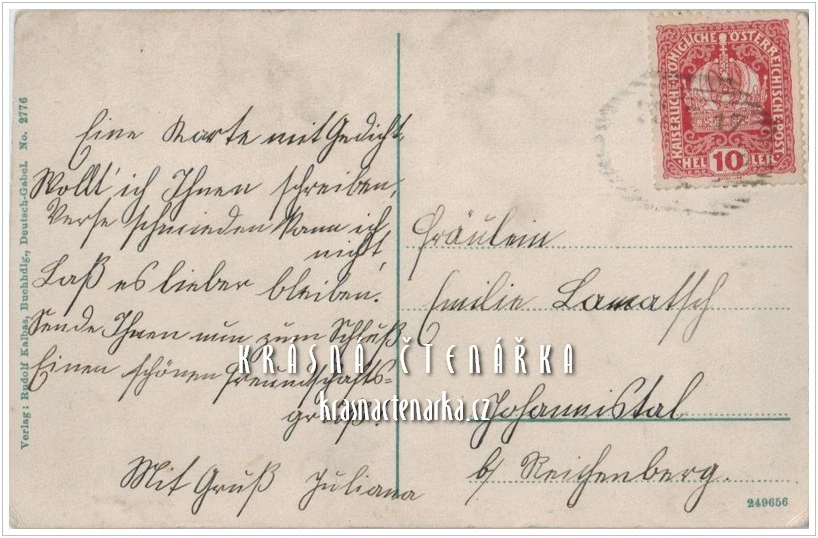 Eine Karte mit Gedicht
Wollt' ich Ihnen schreiben,
Verse schmieden kann ich
nicht,
Laß es lieber bleiben.
Sende Ihnen nun zum Schluß
Einen schönen Freundschafts-
gruß.
Mit Gruß Juliana
Fräulein
Emilie Lamatsch
Johannistal
b/ Reichenberg.
KAISERLICHE KÖNIGLICHE ÖSTERREICHISCHE POST
HEL 10 LER
17
Verlag: Rudolf Kalbas, Buchhdlg., Deutsch-Gabel. No. 2776
249656
KRÁSNÁ ČTENÁŘKA
krasnactenarka.cz